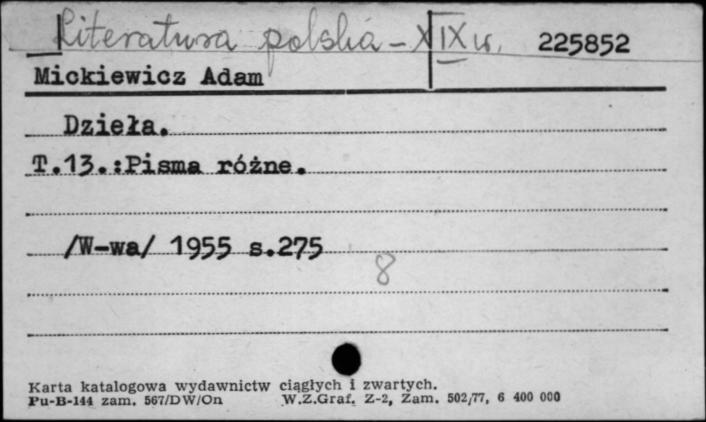 Literatura polska - XIX w. 225852
Mickiewicz Adam
Dzieła.
T.13.:Pisma różne.
/W-wa/ 1955 s.275
8
Karta katalogowa wydawnictw ciągłych i zwartych.
Pu-B-144 zam. 567/DW/On W.Z.Graf. Z-2, Zam. 502/77, 6 400 000